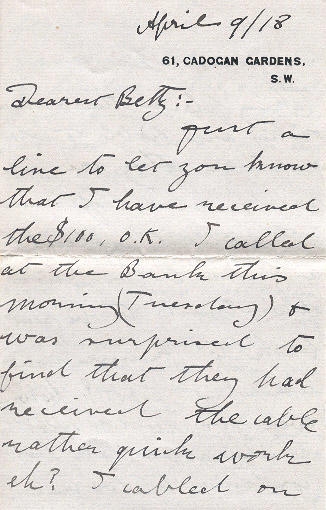 April 9/18
61, CADOGAN GARDENS,
S.W.
Dearest Betty:-
Just a
line to let you know
that I have received
the $100, O.K. I called
at the Bank this
morning (Tuesday) &
was surprised to
find that they had
received the cable
rather quick work
eh? I cabled on